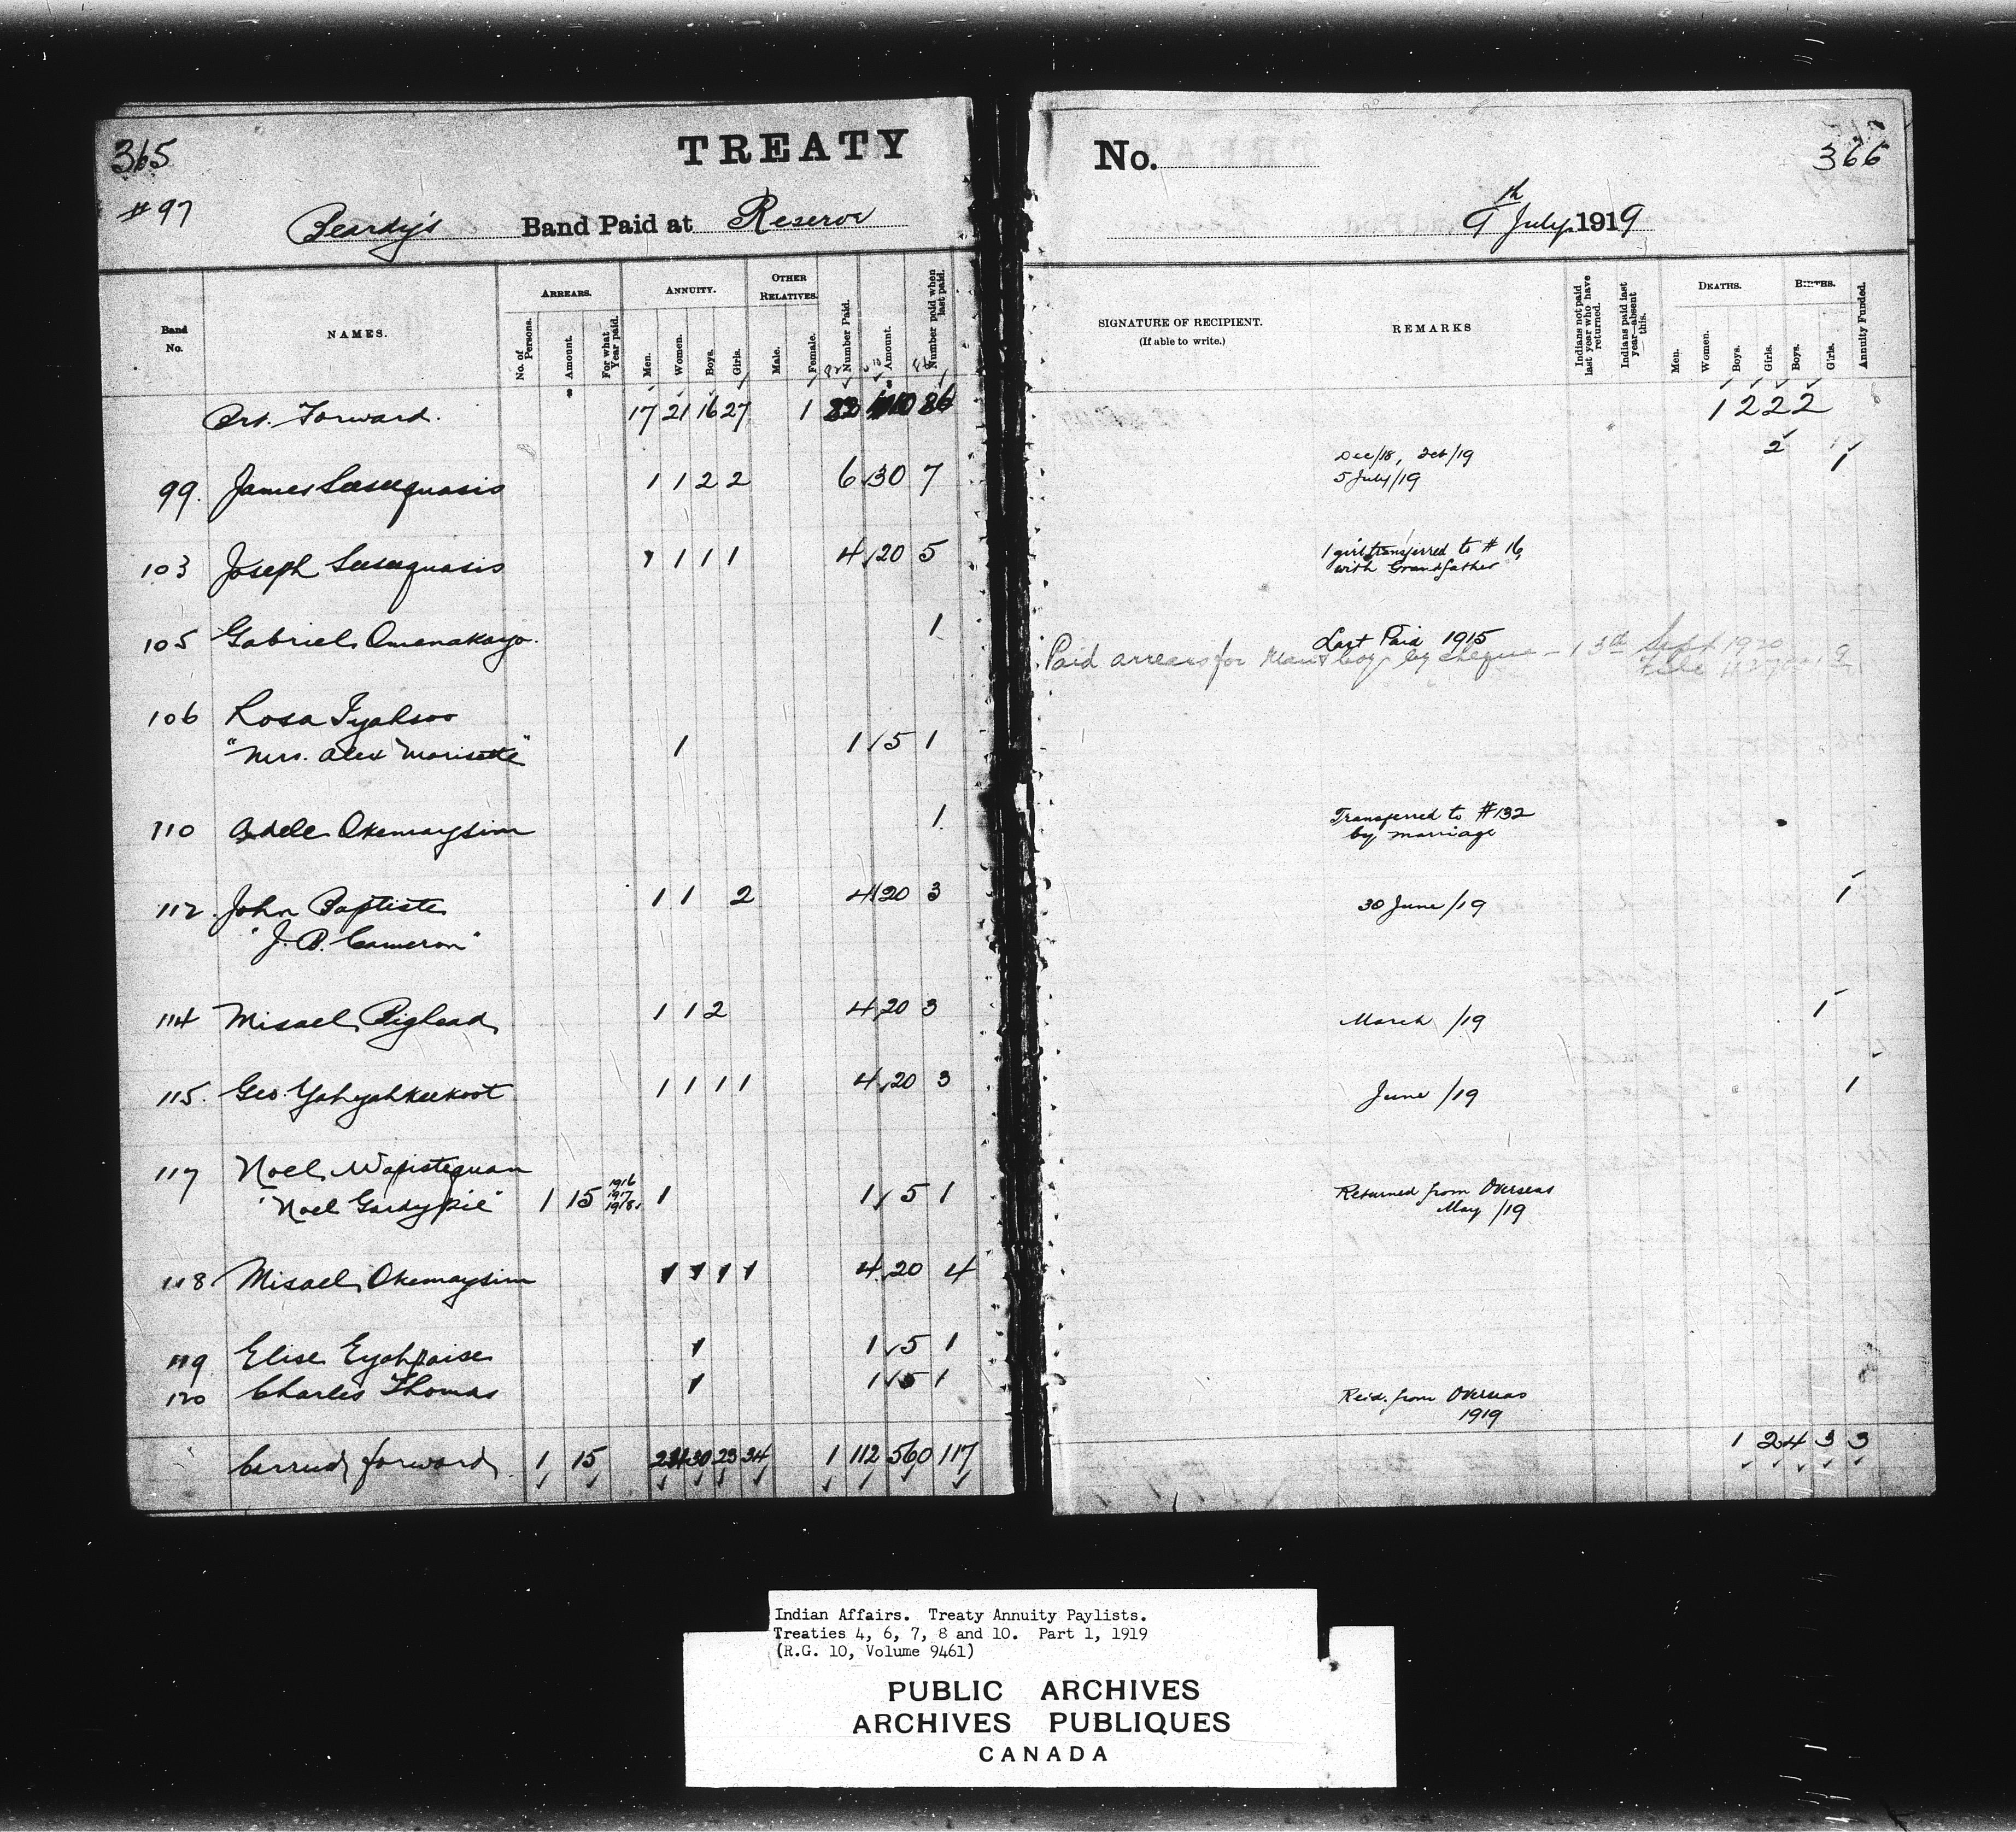 365
TREATY
#97
Beardy's Band Paid at Reserve
Band No.
NAMES.
ARREARS.
No. of Persons.
Amount.
For what Year paid.
ANNUITY.
Men.
Women.
Boys.
Girls.
OTHER RELATIVES.
Male.
Female.
Number Paid.
Amount.
Number paid when last paid.
Brt. Forward. 17 21 16 27 1 86
99. James Seeseequasis 1 1 2 2 6 30 7
103 Joseph Seeseequasis 1 1 1 1 4 20 5
105 Gabriel Omenakayo 1
106 Rosa Iyahsoo
"Mrs. Alex Morisette" 1 1 5 1
110 Adele Okemaysim 1
112 John Baptiste 1 1 2 4 20 3
"J. B. Cameron"
114 Misael Bighead 1 1 2 4 20 3
115. Geo. Yahyahkeekoot 1 1 1 1 4 20 3
117 Noel Wapistequan
"Noel Gardypie" 1 15 1916 1917 1918 1 1 5 1
118 Misael Okemaysim 1 1 1 1 4 20 4
119 Elise Eyahpaise 1 1 5 1
120 Charles Thomas 1 1 5 1
Carried forward 1 15 30 23 34 1 112 560 117
No.
366
9th July 1919
SIGNATURE OF RECIPIENT.
(If able to write.)
REMARKS
Indians not paid last year who have returned.
Indians paid last year—absent this.
DEATHS.
Men.
Women.
Boys.
Girls.
BIRTHS.
Boys.
Girls.
Annuity Funded.
1 2 2 2
Dec/18, Oct/19 2
5 July/19 1
1 girl transferred to #16
with Grandfather
Last Paid 1915
Paid arrears for Man & boy by cheque - 13th Sept 1920
File
Transferred to #132
by marriage
30 June /19 1
March /19 1
June /19 1
Returned from Overseas
May /19
Retd. from Overseas
1919
1 2 4 3 3
Indian Affairs. Treaty Annuity Paylists.
Treaties 4, 6, 7, 8 and 10. Part 1, 1919
(R.G. 10, Volume 9461)
PUBLIC ARCHIVES
ARCHIVES PUBLIQUES
CANADA